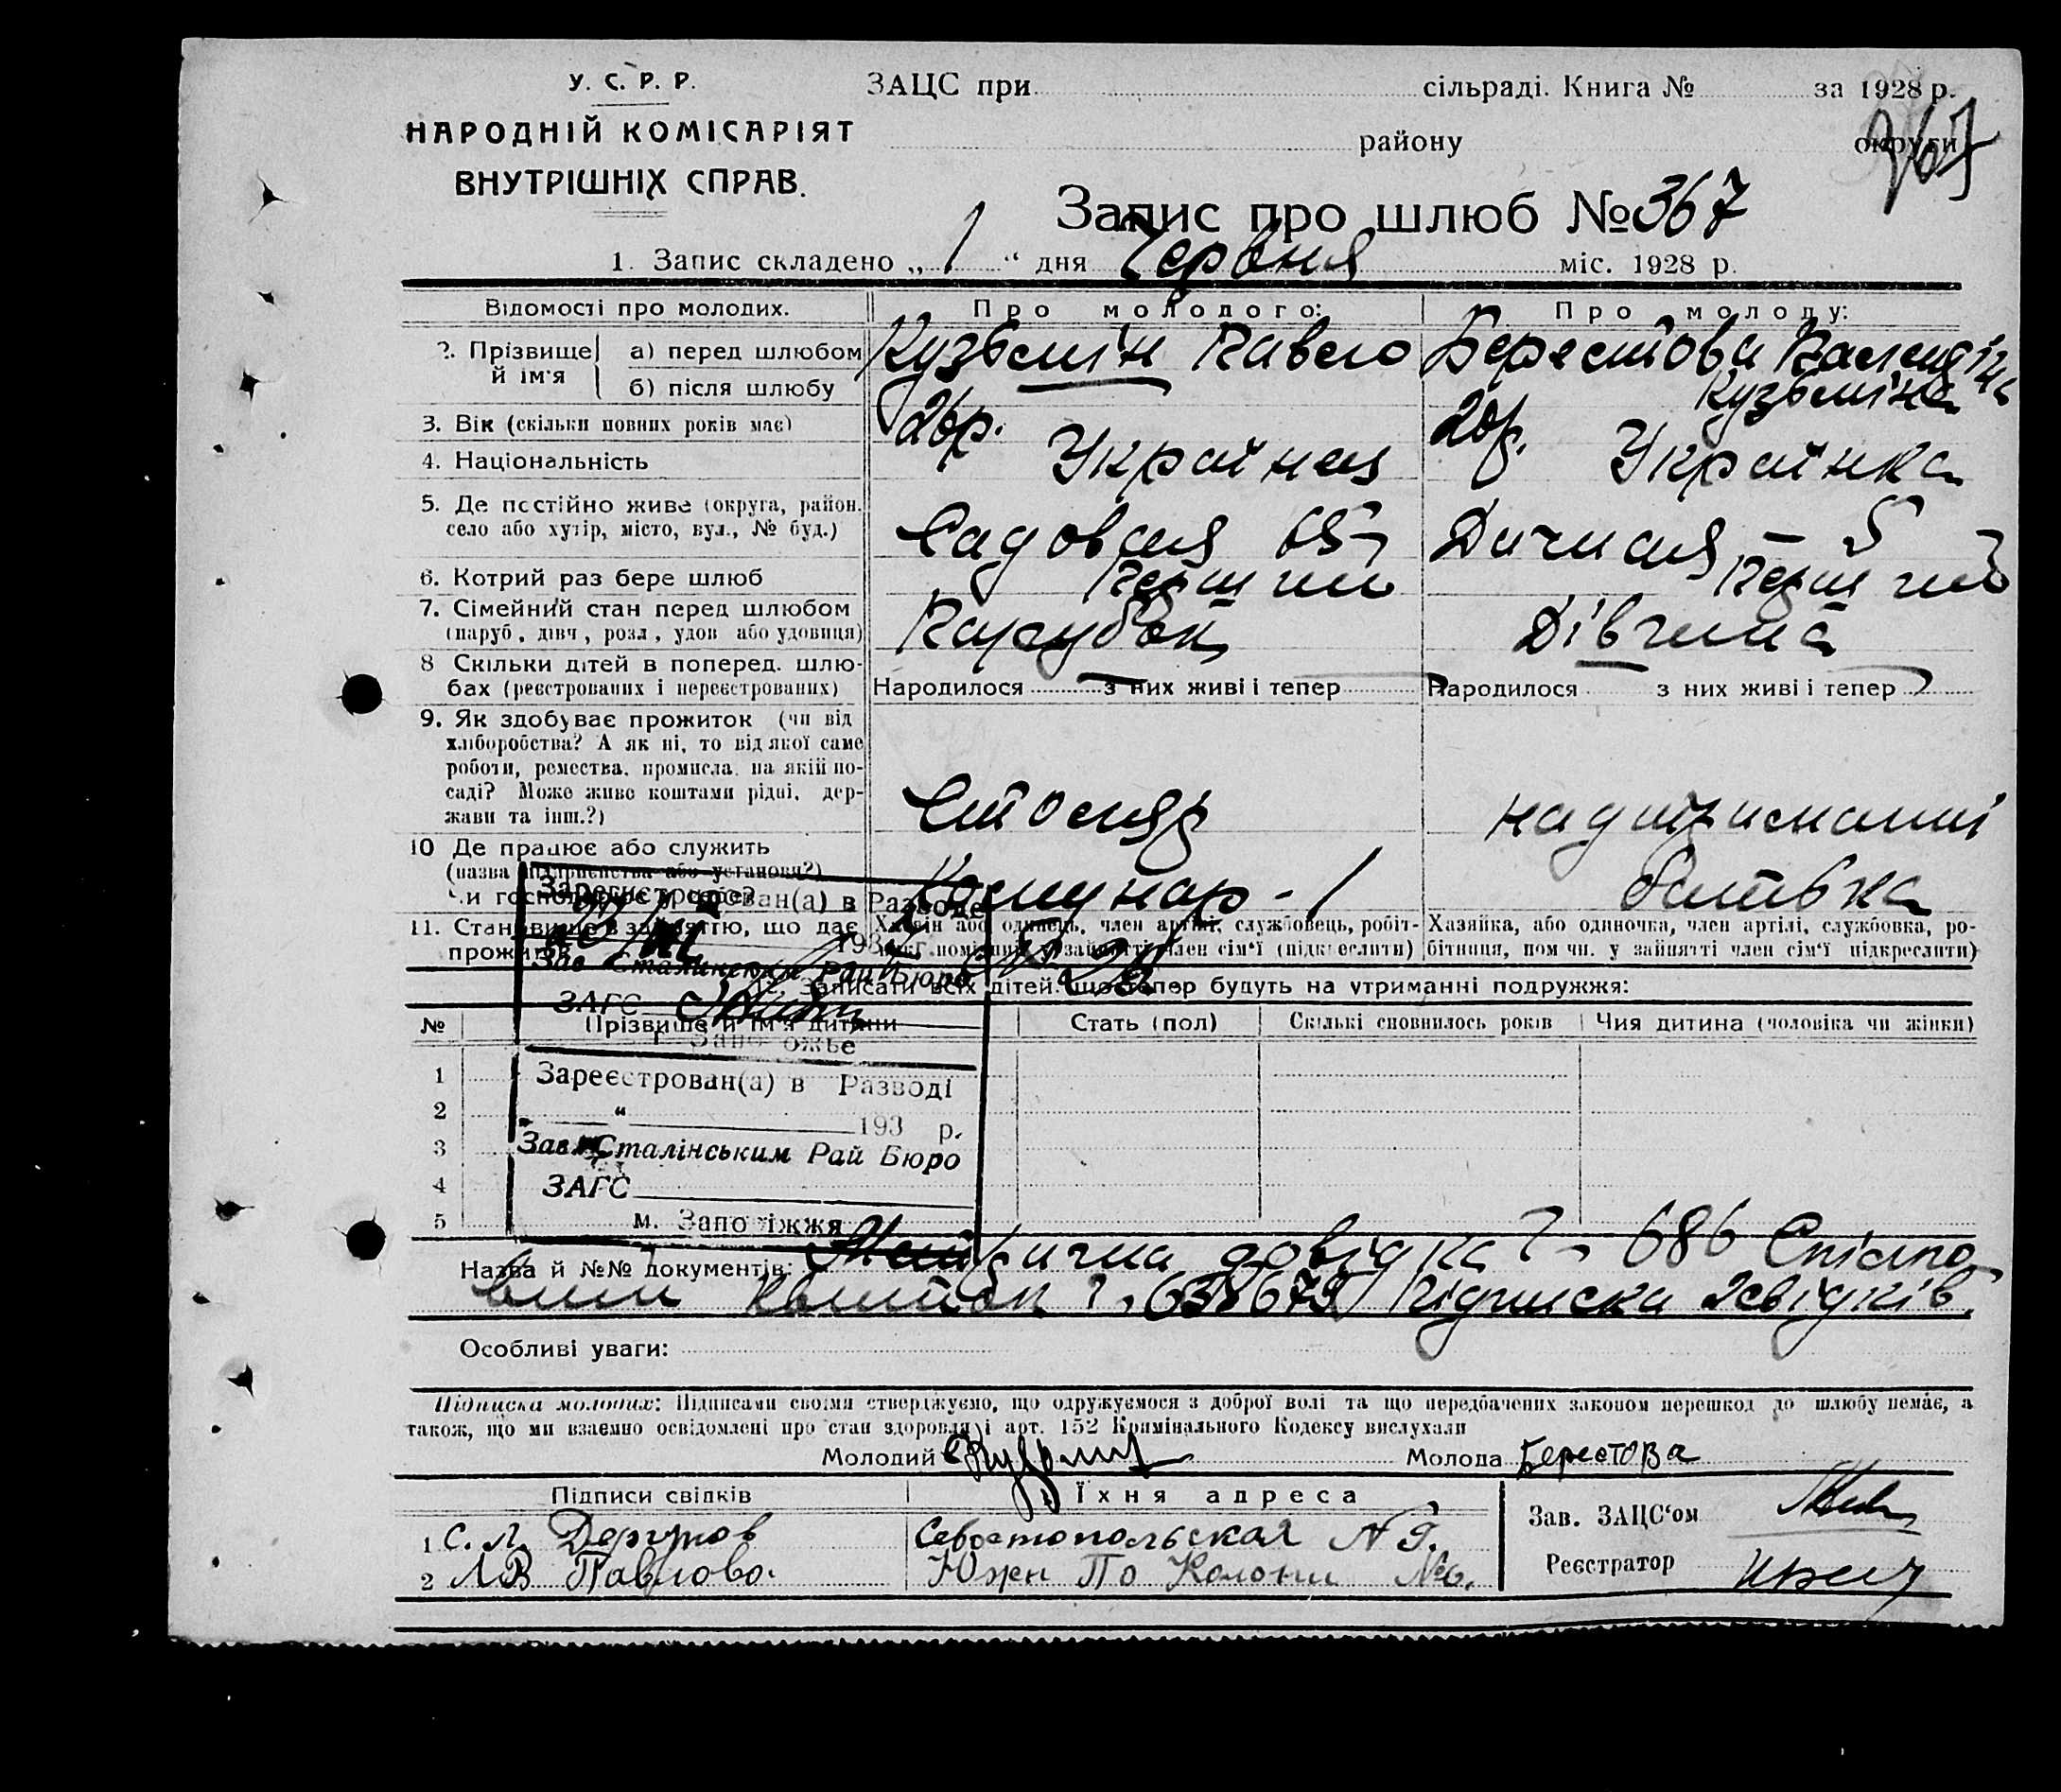 У. С. Р. Р.
НАРОДНІЙ КОМІСАРІЯТ
ВНУТРІШНІХ СПРАВ.
ЗАЦС при сільраді. Книга № за 1928 р.
району округи
367
Запис про шлюб № 367
1. Запис складено „ 1 “ дня Червня міс. 1928 р.
Відомості про молодих. Про молодого: Про молоду:
2. Прізвище й ім'я а) перед шлюбом Кузьмін Павло Берестова
б) після шлюбу Кузьміна
3. Вік (скільки повних років має) 26р. 20р.
4. Національність Українец Українка
5. Де постійно живе (округа, район,
село або хутір, місто, вул., № буд.) Садовая 65 – 5
6. Котрий раз бере шлюб Перший Перший
7. Сімейний стан перед шлюбом
(паруб., дівч., розл., удов або удовиця) Парубок Дівчина
8 Скільки дітей в поперед. шлю-
бах (реєстрованих і нереєстрованих) Народилося з них живі і тепер Народилося з них живі і тепер
9. Як здобуває прожиток (чи від
хліборобства? А як ні, то від якої саме
роботи, ремества, промисла, на якій по-
саді? Може живе коштами рідні, дер-
жави та інш.?) Столяр на утриманні
10 Де працює або служить
(назва підприємства або установи?) Комунар - 1 батька
11. Становище в занятті, що дає
прожиток
Хазяїн або одинець, член артілі, службовець, робіт-
член сім'ї (підкреслити)
Хазяйка, або одиночка, член артілі, службовка, ро-
бітниця, пом чн. у зайнятті член сім'ї підкреслити)
Зарегистрован(а) в Разводе
193
Зав Сталинским Рай Бюро
ЗАГС
г. Запорожье
12. Записати всіх дітей, що тепер будуть на утриманні подружжя:
№ Прізвище й ім'я дитини Стать (пол) Скількі сповнилось років Чия дитина (чоловіка чи жінки)
1
2
3
4
5
Зареєстрован(а) в Разводі
“ 193 р.
Зав Сталінським Рай Бюро
ЗАГС
м. Запоріжжя
Назва й №№ документів: Метрична довідка 686
Підписка свідків.
Особливі уваги:
Підписка молодих: Підписами своїми стверджуємо, що одружуємося з доброї волі та що передбачених законом перешкод до шлюбу немає, а
також, що ми взаємно освідомлені про стан здоровля і арт. 152 Кримінального Кодексу вислухали
Молодий Молода Берестова
Підписи свідків Їхня адреса
1 С. Л. Севостопольская
2 Л В Павлова. Южн По Колони № 6.
Зав. ЗАЦС'ом
Реєстратор